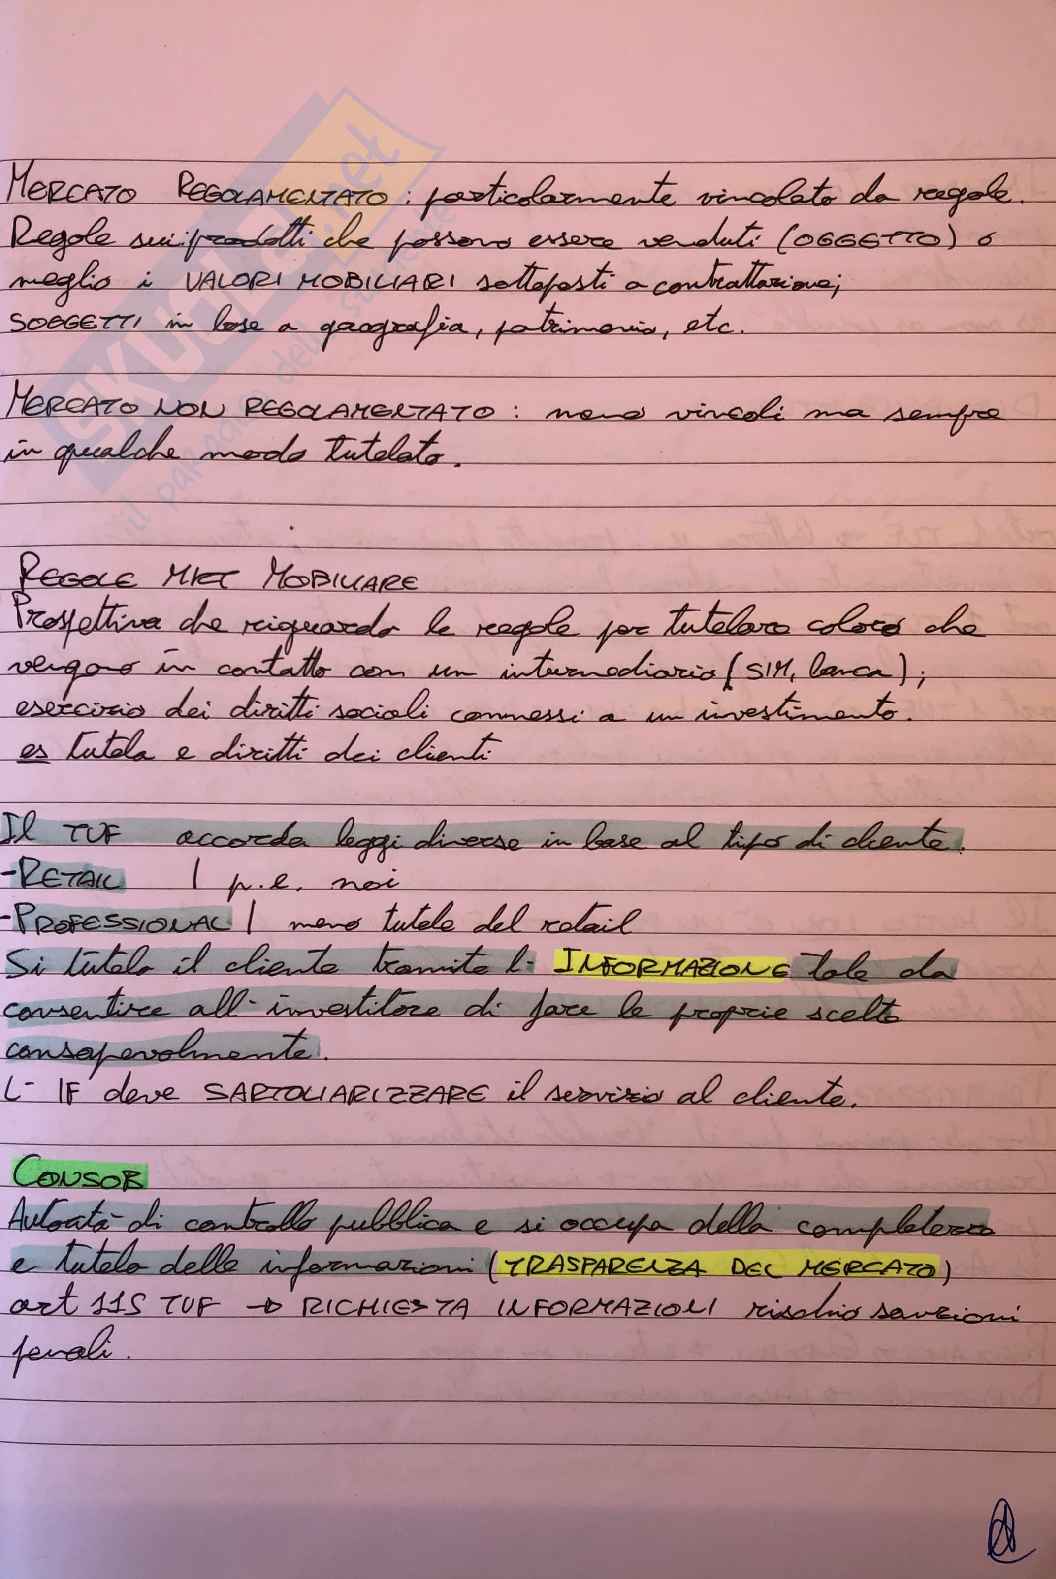 MERCATO REGOLAMENTATO : particolarmente vincolato da regole.
Regole sui prodotti che possono essere venduti (OGGETTO) o
meglio i VALORI MOBILIARI sottoposti a contrattazione;
SOGGETTI in base a geografia, patrimonio, etc.
MERCATO NON REGOLAMENTATO : meno vincoli ma sempre
in qualche modo tutelato.
REGOLE MKT MOBILIARE
Prospettiva che riguarda le regole per tutelare coloro che
vengono in contatto con un intermediario (SIM, banca) ;
esercizio dei diritti sociali connessi a un investimento.
es tutela e diritti dei clienti
Il TUF accorda leggi diverse in base al tipo di cliente.
-RETAIL | p.e. noi
-PROFESSIONAL | meno tutele del retail
Si tutela il cliente tramite l' INFORMAZIONE tale da
consentire all'investitore di fare le proprie scelte
consapevolmente.
L' IF deve SARTOLIARIZZARE il servizio al cliente.
CONSOB
Autorità di controllo pubblica e si occupa della completezza
e tutela delle informazioni (TRASPARENZA DEL MERCATO)
art 115 TUF → RICHIESTA INFORMAZIONI rischio sanzioni
penali.
SKUOLA.net